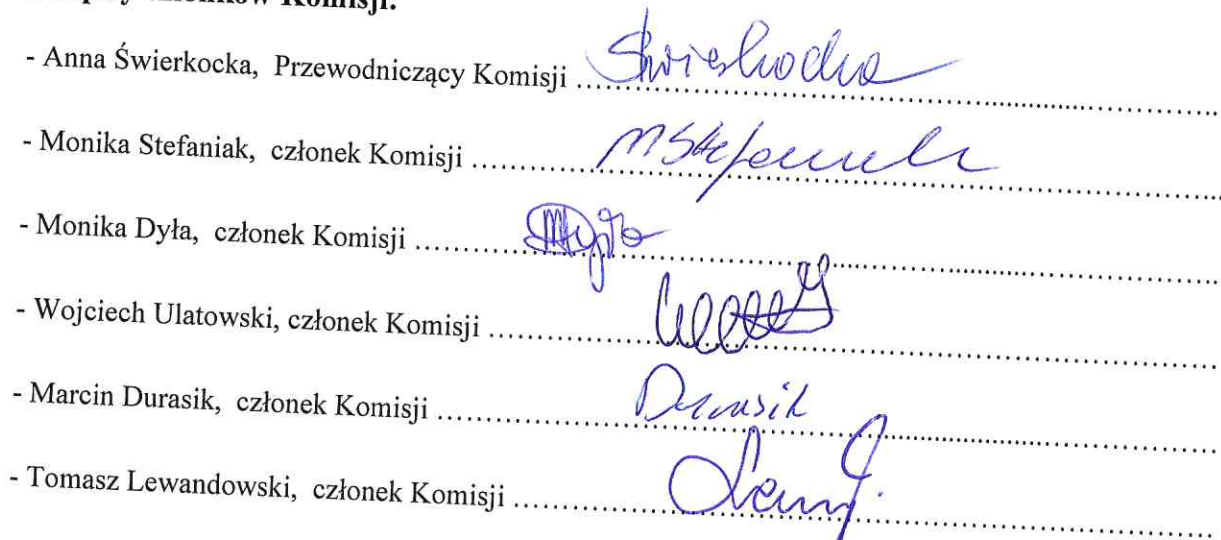 członków Komisji:
- Anna Świerkocka, Przewodniczący Komisji Świerkocka
- Monika Stefaniak, członek Komisji MStefaniak
- Monika Dyła, członek Komisji MDyła
- Wojciech Ulatowski, członek Komisji
- Marcin Durasik, członek Komisji Durasik
- Tomasz Lewandowski, członek Komisji